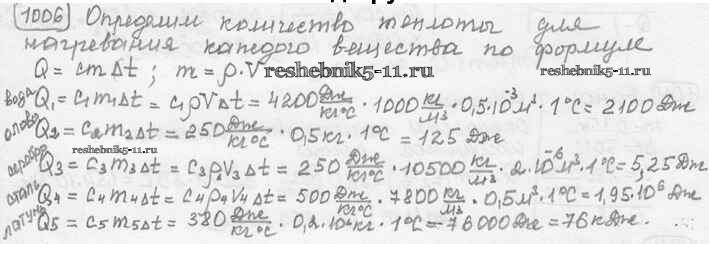 1006) Определим количество теплоты для
нагревания каждого вещества по формуле
Q = cm Δt ; m = ρ·V reshebnik5-11.ru reshebnik5-11.ru
вода Q₁ = c₁m₁Δt = c₁ρVΔt = 4200 Дж/кг°C · 1000 кг/м³ · 0,5·10⁻³м³ · 1°C = 2100 Дж
олово Q₂ = c₂m₂Δt = 250 Дж/кг°C · 0,5кг · 1°C = 125 Дж
reshebnik5-11.ru
серебро Q₃ = c₃m₃Δt = c₃ρ₃V₃Δt = 250 Дж/кг°C · 10500 кг/м³ · 2·10⁻⁶м³ · 1°C = 5,25 Дж
сталь Q₄ = c₄m₄Δt = c₄ρ₄V₄Δt = 500 Дж/кг°C · 7800 кг/м³ · 0,5м³ · 1°C = 1,95·10⁶ Дж
латунь Q₅ = c₅m₅Δt = 380 Дж/кг°C · 0,2·10³кг · 1°C = 76000 Дж = 76 кДж.